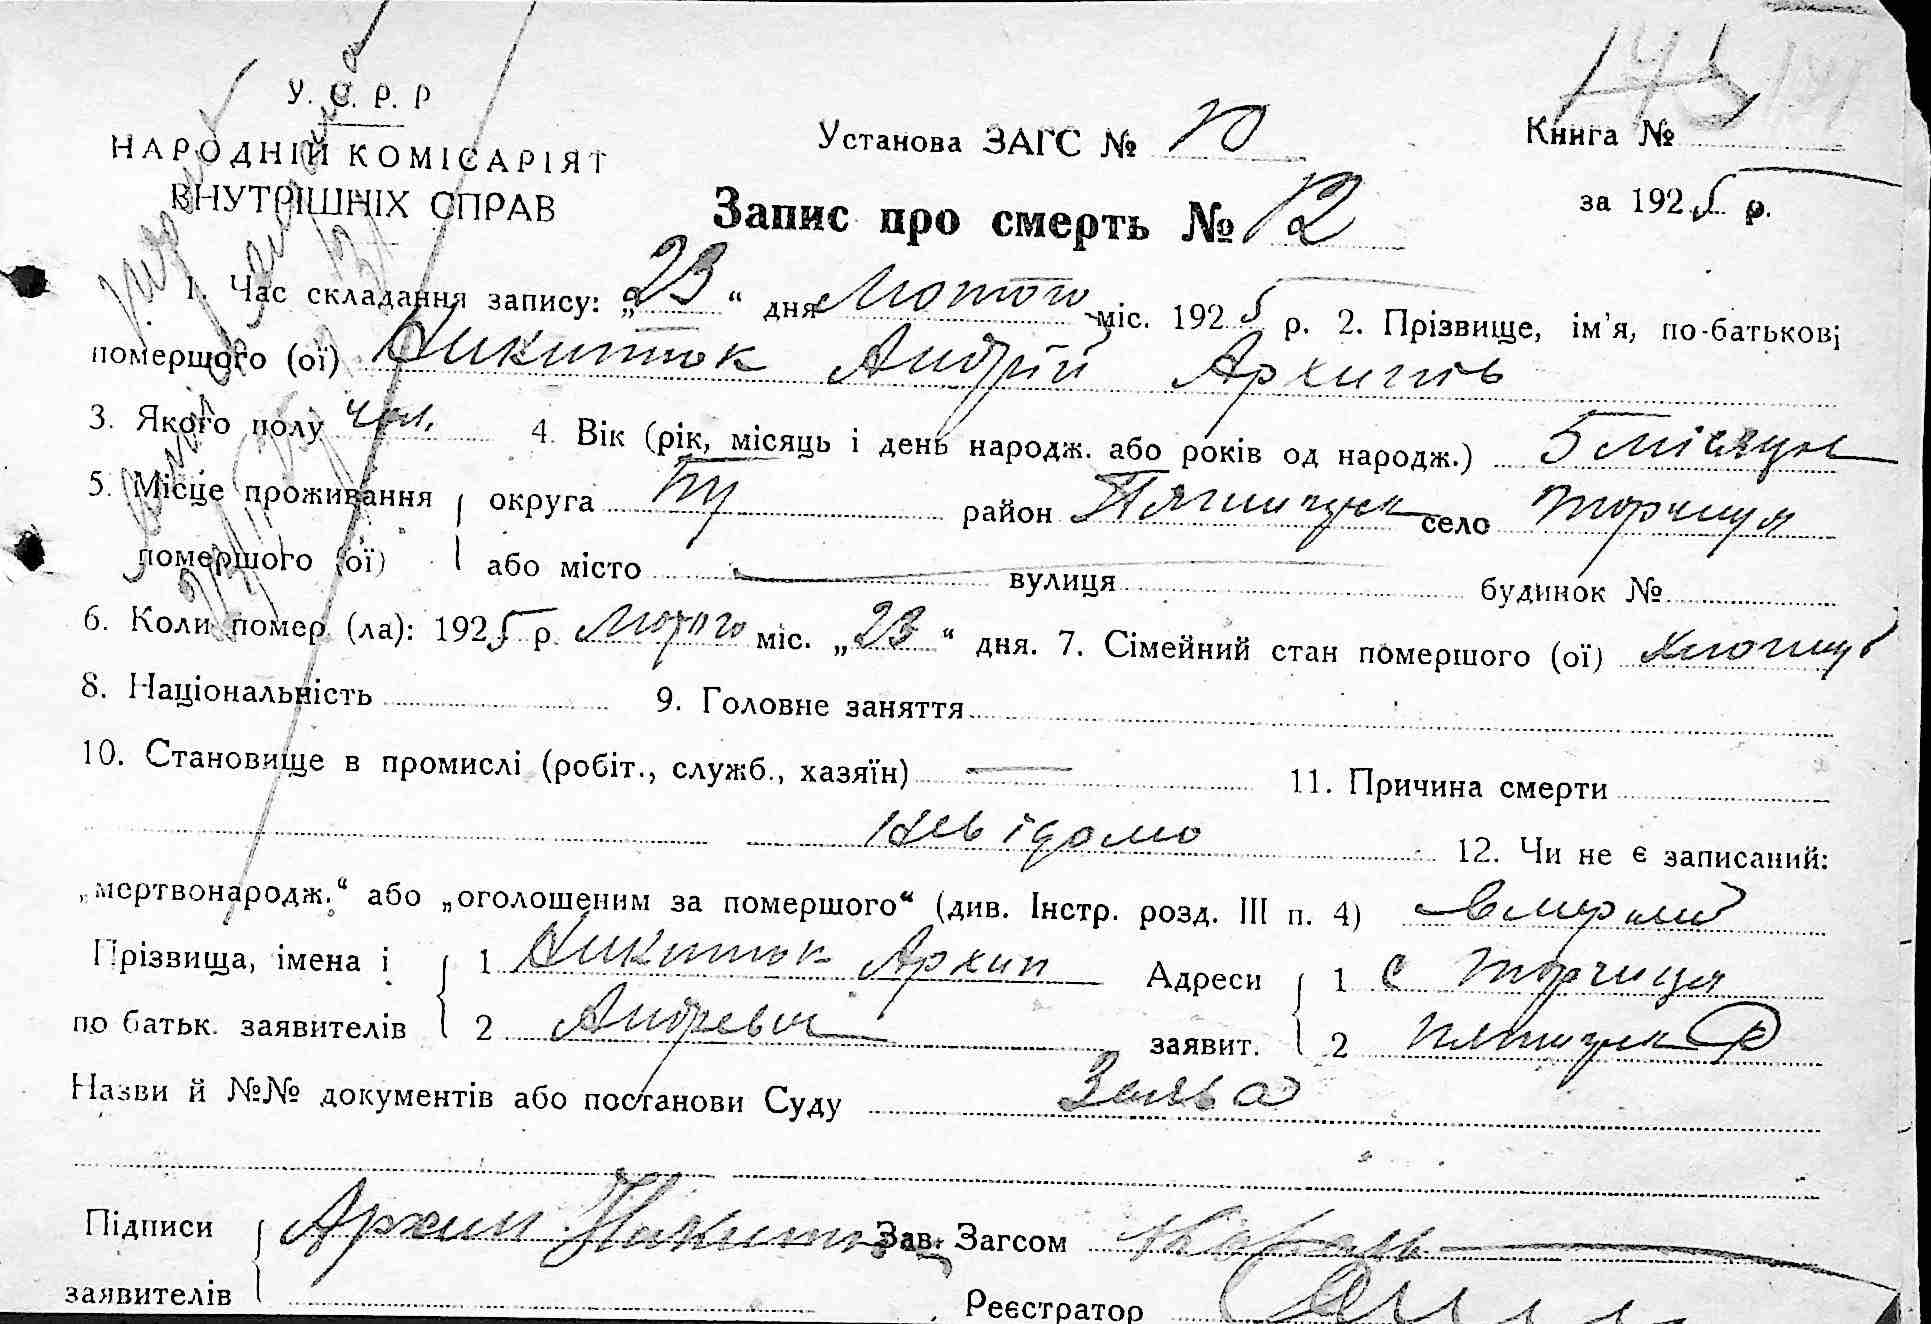 У. С. Р. Р
НАРОДНІЙ КОМІСАРІЯТ
ВНУТРІШНІХ СПРАВ
Установа ЗАГС № 10
Книга №
за 1925 р.
Запис про смерть № 12
1. Час складання запису: „23“ дня Лютого міс. 1925 р. 2. Прізвище, ім'я, по-батькові
померщого (ої) Никитюк Андрій Архипів
3. Якого полу чол. 4. Вік (рік, місяць і день народж. або років од народж.) 5 місяців
5. Місце проживання округа район село Торчиця
померщого (ої) або місто вулиця будинок №
6. Коли помер (ла): 1925 р. Лютого міс. „23“ дня. 7. Сімейний стан помершого (ої)
8. Національність 9. Головне заняття
10. Становище в промислі (робіт., служб., хазяїн) — 11. Причина смерти
невідомо 12. Чи не є записаний:
„мертвонародж.“ або „оголошеним за помершого“ (див. Інстр. розд. III п. 4) вмерлий
Прізвища, імена і 1 Никитюк Архип Адреси 1 с Торчиця
по батьк. заявителів 2 Андреєвич заявит. 2
Назви й №№ документів або постанови Суду Заява
Підписи Архип Никитюк Зав. Загсом Коваль
заявителів Реєстратор